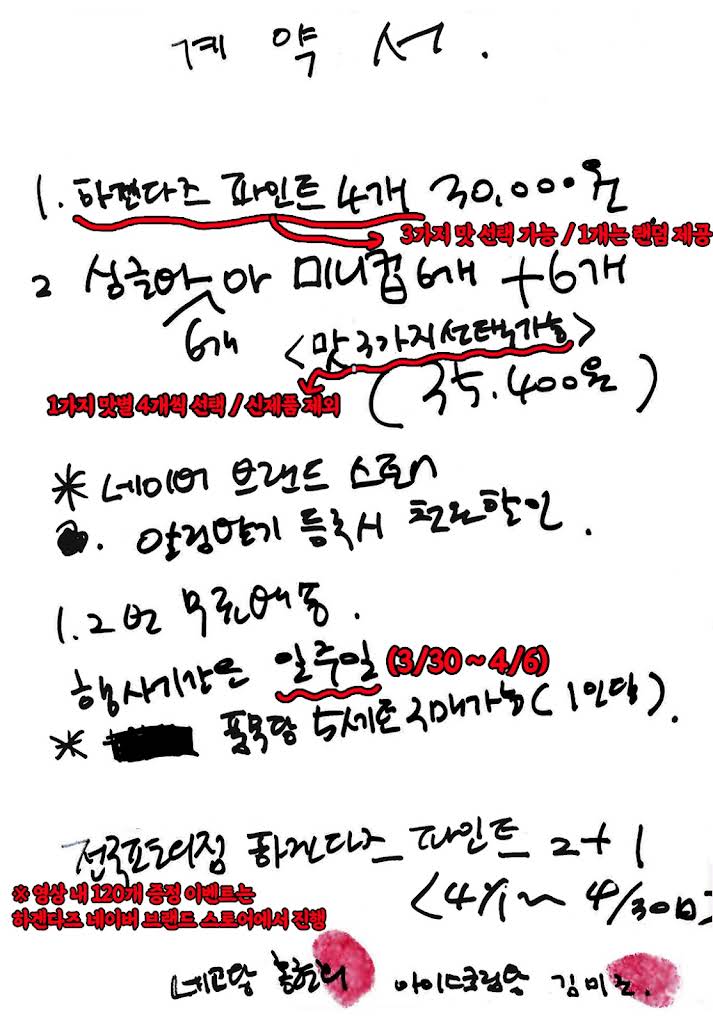 계약서.
1. 하겐다즈 파인트 4개 30,000원
3가지 맛 선택 가능 / 1개는 랜덤 제공
2 싱글바 미니컵 6개 + 6개
6개
<맛 3가지 선택가능>
1가지 맛별 4개씩 선택 / 신제품 제외
(35,400원)
* 네이버 브랜드 스토어
알림받기 등록시 할인.
1.2번 무료배송.
행사기간은 일주일 (3/30 ~ 4/6)
* 품목당 5세트 구매가능 (1인당).
전국편의점 하겐다즈 파인트 2+1
※ 영상 내 120개 증정 이벤트는
<4/1 ~ 4/30일>
하겐다즈 네이버 브랜드 스토어에서 진행
네고왕 아이스크림왕 김미조